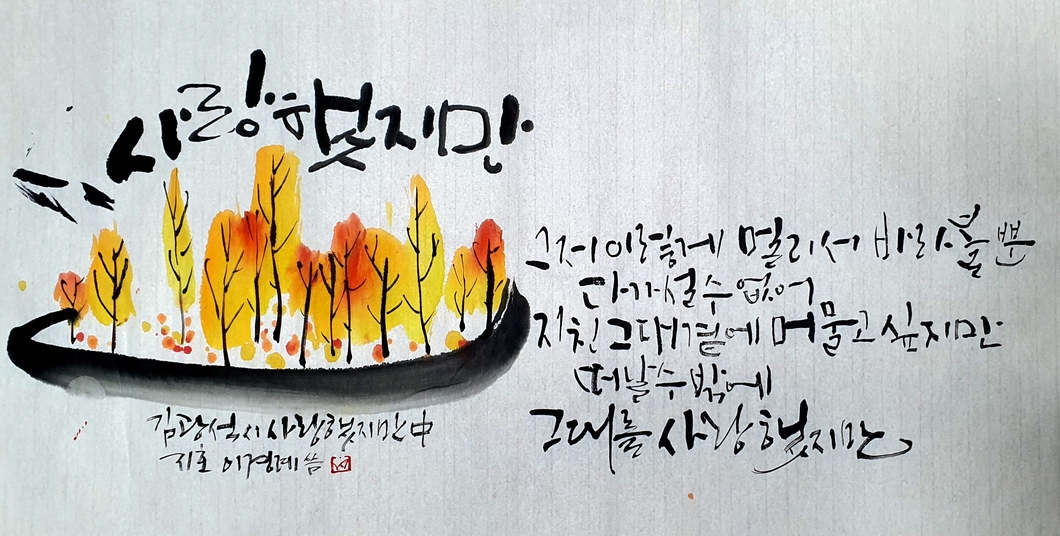 사랑했지만
그저 이렇게 멀리서 바라볼 뿐
다가설 수 없어
지친 그대 곁에 머물고 싶지만
떠날 수 밖에
그대를 사랑했지만
김광석시 사랑했지만 中
지호 이경례 씀